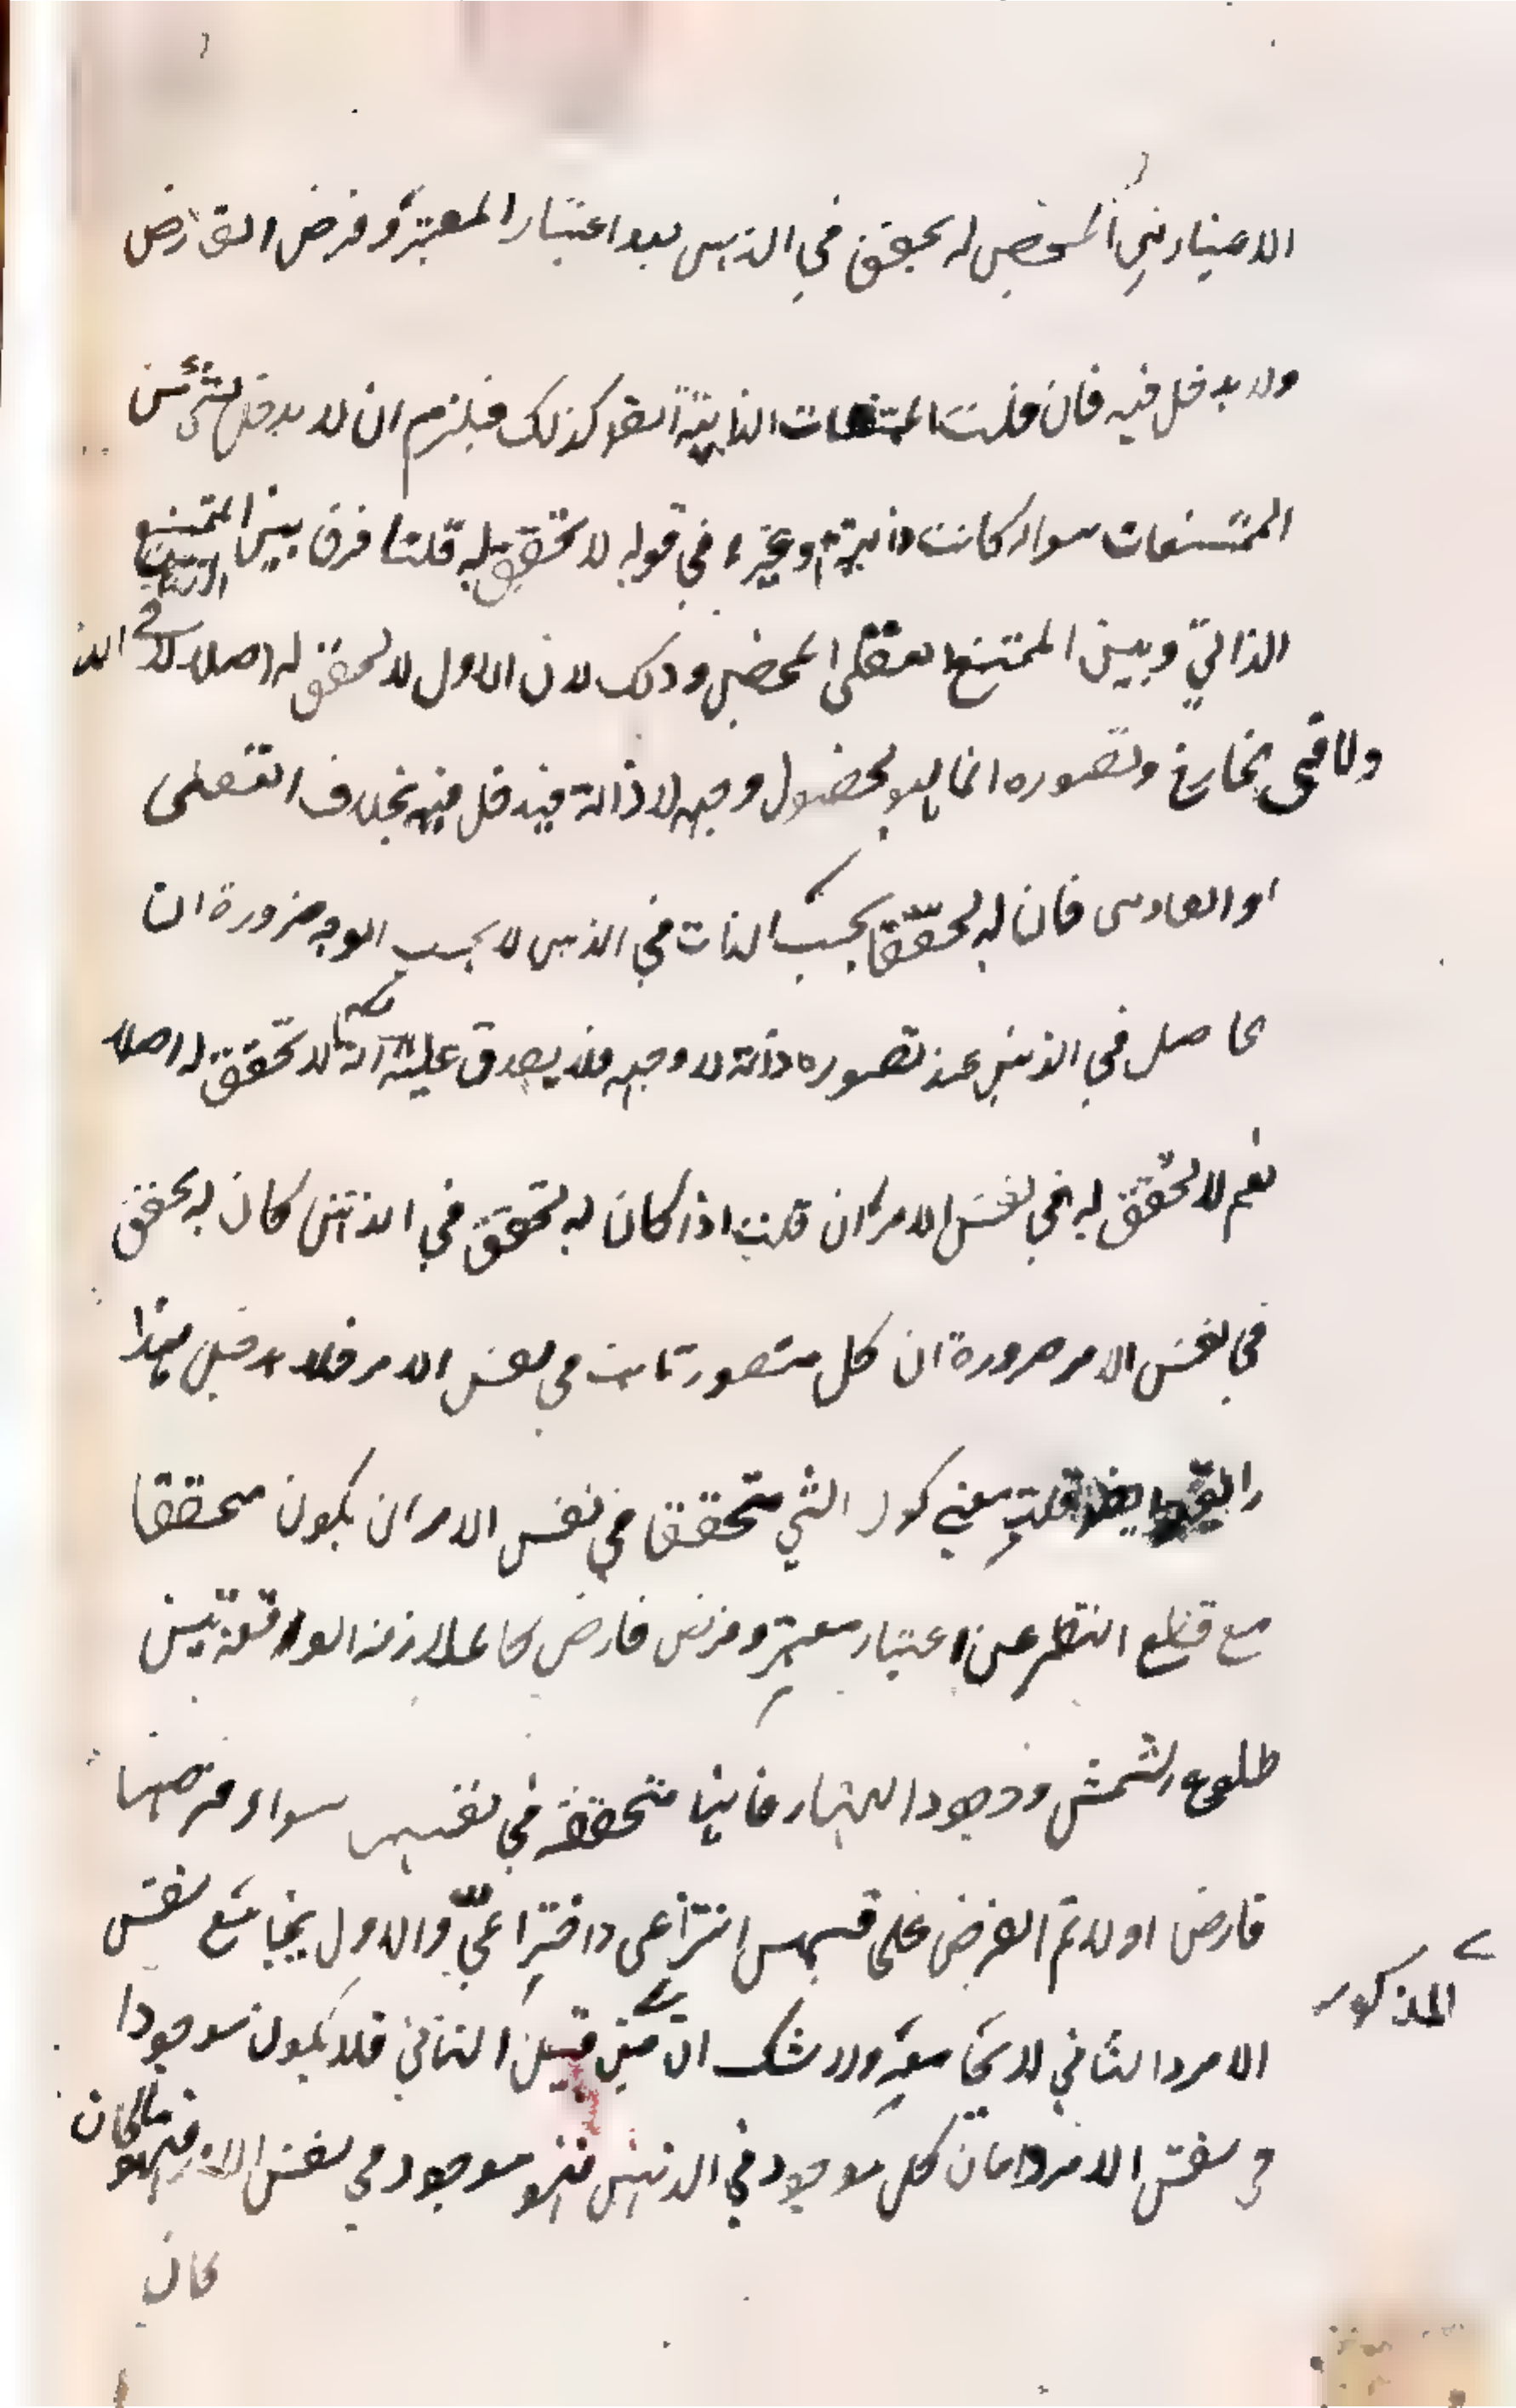 الاعتباري المحض له تحقق في الذهن بعد اعتبار المعتبر وفرض الفارض
ولا يدخل فيه فان قلت الممتنعات الذاتية ايضا كذلك فيلزم ان لا يدخل شئ من
الممتنعات سواء كانت ذاتية او غيره في قوله لا تحقق له قلنا فرق بين الممتنع
الذاتي وبين الممتنع العقلي المحض وذلك لان الاول لا تحقق له اصلا لا في الذهن
ولا في الخارج وتصوره انما هو بحصول وجهه لا ذاته فيدخل فيه بخلاف العقلي
او العادي فان له تحققا بحسب الذات في الذهن لا بحسب الوجه ضرورة ان
حاصل في الذهن عند تصوره ذاته لا وجهه فلا يصدق عليه انه لا تحقق له اصلا
نعم لا تحقق له في نفس الامر ان قلت اذا كان له تحقق في الذهن كان له تحقق
في نفس الامر ضرورة ان كل متصور ثابت في نفس الامر فلا يدخل بهذا
القيد ايضا قلت معنى كون الشئ متحققا في نفس الامر ان يكون متحققا
مع قطع النظر عن اعتبار معتبر وفرض فارض كالملازمة الواقعة بين
طلوع الشمس ووجود النهار فانها متحققة في نفسها سواء فرضها
فارض او لا ثم الفرض على قسمين انتزاعي واختراعي والاول يجامع نفس
الامر والثاني لا يجامعه ولا شك ان من قبيل الثاني فلا يكون موجودا
المذكور
في نفس الامر وان كل موجود في الذهن فهو موجود في نفس الامر فهو ما كان
كان